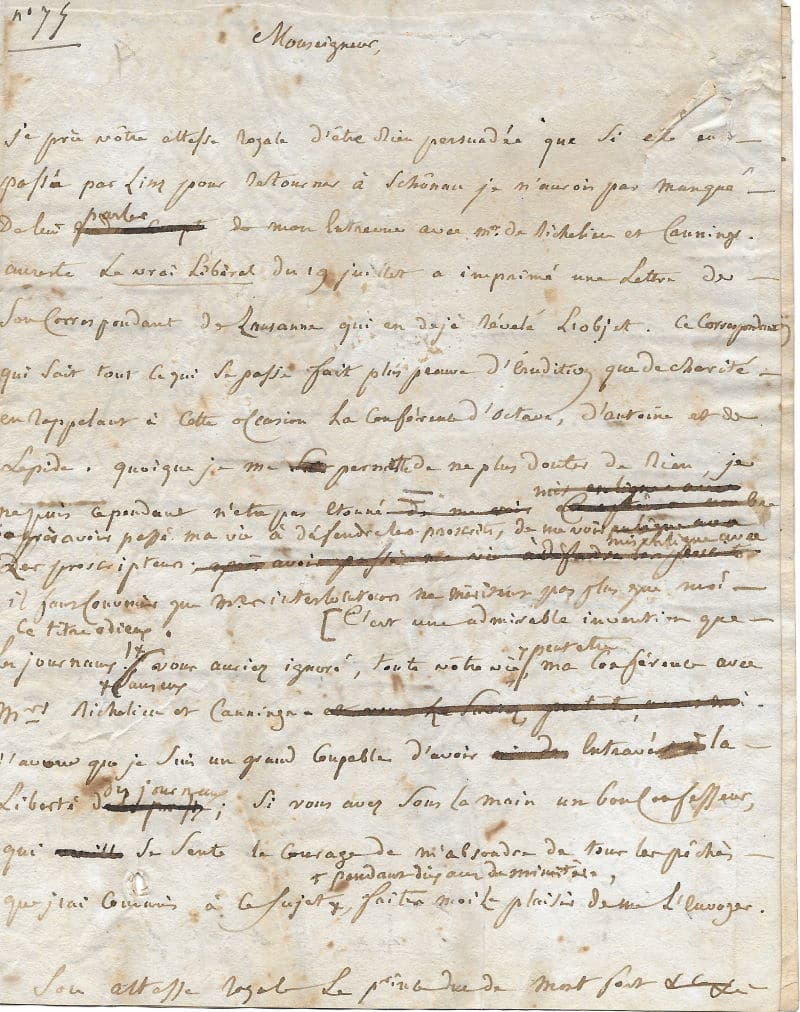 n° 75
Monseigneur,
je prie vôtre altesse Royale d'être bien persuadée que si elle eut
passée par Linz pour Retourner à Schönau je n'aurois pas manqué
De leur parler de mon Entrevue avec mr. de Richelieu et Cannings.
aureste Le vrai Libéral du 19 juillet a imprimé une Lettre de
Son Correspondant de Lausanne qui en dejà Révélé L'objet. Ce Correspondant
qui sait tout ce qui se passe fait plus preuve d'érudition que de charité
en Rappelant à Cette occasion La Conférence d'Octave, d'antoine et de
Lepide. quoique je me permette de ne plus douter de Rien, je
ne puis cependant n'etre pas étonné
après avoir passé ma vie à défendre les proscrits, de me voir
mis en ligne avec
Des proscripteurs.
il faut Convenir que mes interlocuteurs ne méritent pas plus que moi
Ce titre odieux. [C'est une admirable invention que
les journaux! vous auriez ignoré, toute vôtre vie, peut etre
ma Conférence avec
+ causeurs
Mrs Richelieu et Cannings.
j'avoue que je suis un grand Coupable d'avoir Entravé la
Liberté des journaux; Si vous avez sous la main un bon Confesseur,
qui se sente le Courage de m'absoudre de tous les péchés
+ pendant dix ans de ministère,
que j'ai Commis à ce sujet +, faites moi le plaisir de me L'envoyer.
Son altesse Royale Le prince duc de Montfort